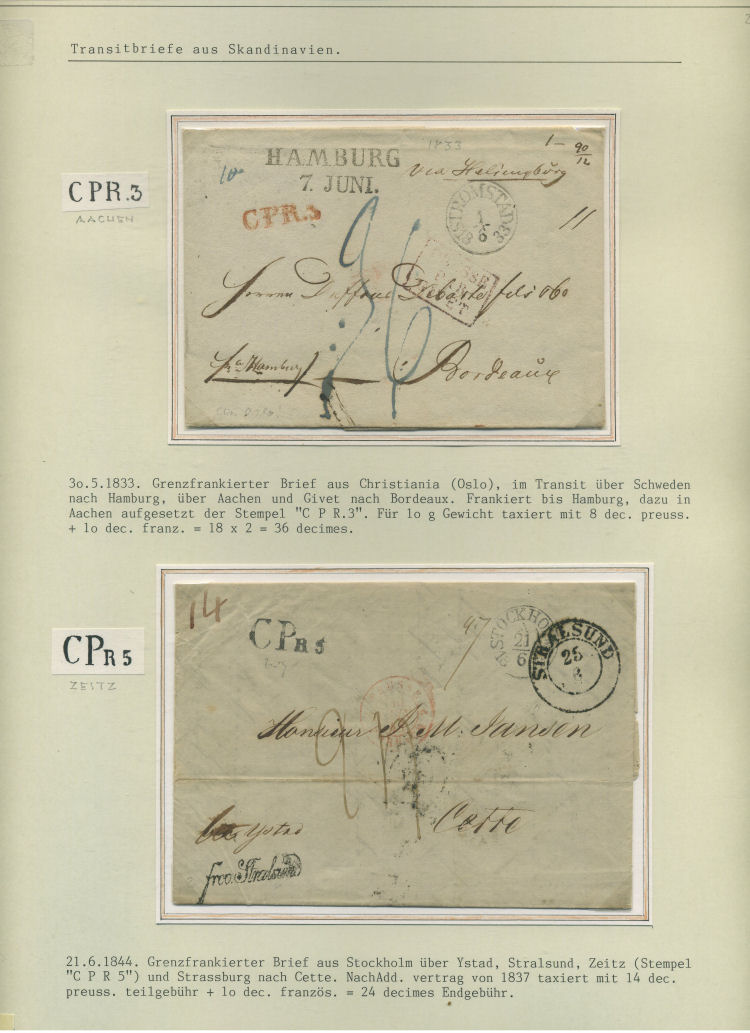 Transitbriefe aus Skandinavien.
CPR.3
AACHEN
HAMBURG
7. JUNI.
1833
1—
90
12
via Helsingborg
CPR.3
STRÖMSTAD
1
6
18 33
11
36
Bordeaux
3o.5.1833. Grenzfrankierter Brief aus Christiania (Oslo), im Transit über Schweden
nach Hamburg, über Aachen und Givet nach Bordeaux. Frankiert bis Hamburg, dazu in
Aachen aufgesetzt der Stempel "C P R.3". Für 1o g Gewicht taxiert mit 8 dec. preuss.
+ 1o dec. franz. = 18 x 2 = 36 decimes.
CPR 5
ZEITZ
14
CPR 5
STOCKHOLM
21
6
STRALSUND
25
6
Monsieur J. M. Jansen
24
Cette
Ystad
frco. Stralsund
21.6.1844. Grenzfrankierter Brief aus Stockholm über Ystad, Stralsund, Zeitz (Stempel
"C P R 5") und Strassburg nach Cette. NachAdd. vertrag von 1837 taxiert mit 14 dec.
preuss. teilgebühr + 1o dec. französ. = 24 decimes Endgebühr.